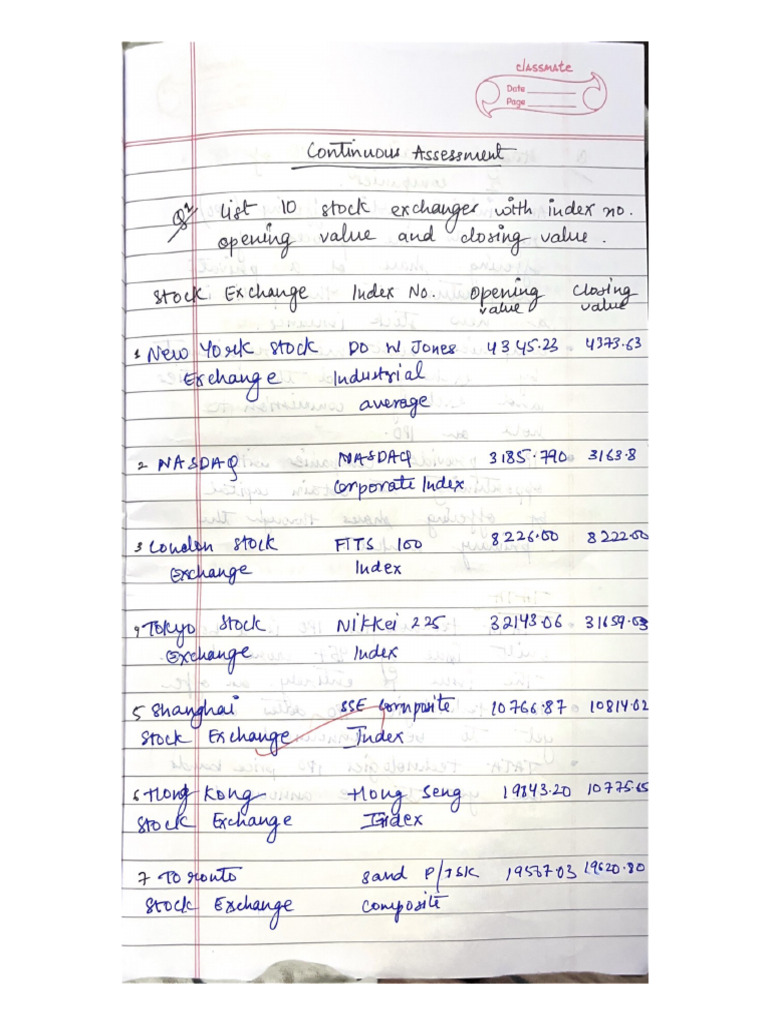 classmate
Date
Page
Continuous Assessment
Q2 List 10 stock exchanges with index no.
opening value and closing value.
Stock Exchange Index No. Opening value Closing value
1 New York Stock DO W Jones 4345.23 4373.63
Exchange Industrial
average
2 NASDAQ NASDAQ 3185.790 3163.8
Corporate Index
3 London Stock FITS 100 8226.00 8222.00
Exchange Index
4 Tokyo Stock Nikkei 225 32143.06 31659.03
Exchange Index
5 Shanghai SSE Composite 10766.87 10814.02
Stock Exchange Index
6 Hong Kong Hong Seng 19843.20 10775.65
Stock Exchange Index
7 Toronto Sand P/TSK 19567.03 19620.80
Stock Exchange Composite